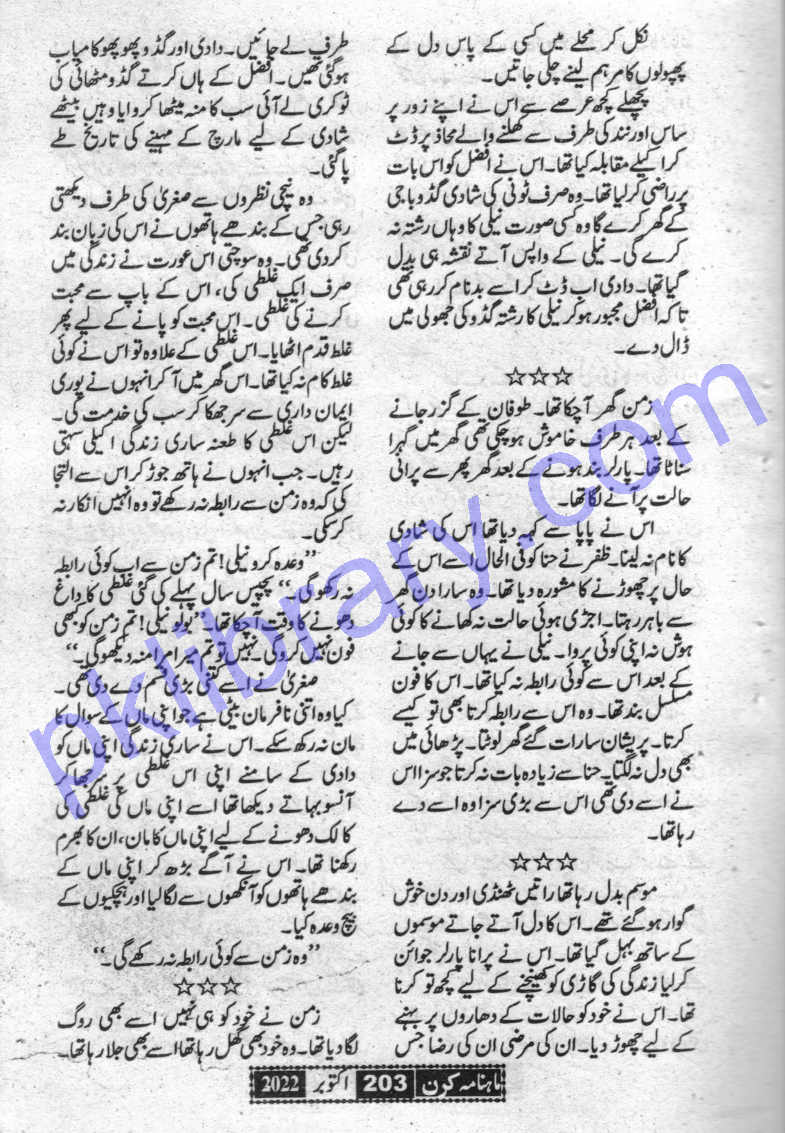 نکل کر محلے میں کسی کے پاس دل کے
پھپھولوں کا مرہم لینے چلی جاتیں۔
پچھلے کچھ عرصے سے اس نے اپنے زور پر
ساس اور نند کی طرف سے کھلنے والے محاذ پر ڈٹ
کر اکیلے مقابلہ کیا تھا۔ اس نے افضل کو اس بات
پر راضی کر لیا تھا۔ وہ صرف ٹوٹی کی شادی گڈو باجی
کے گھر کرے گا وہ کسی صورت نیلی کا وہاں رشتہ نہ
کرے گی۔ نیلی کے واپس آتے نقشہ ہی بدل
گیا تھا۔ دادی اب ڈٹ کر اسے بدنام کر رہی تھی
تاکہ افضل مجبور ہو کر نیلی کا رشتہ گڈو کی جھولی میں
ڈال دے۔
☆☆☆
زمن گھر آ چکا تھا۔ طوفان کے گزر جانے
کے بعد ہر طرف خاموش ہو چکی تھی گھر میں گہرا
سناٹا تھا۔ پارلر بند ہونے کے بعد گھر پھر سے پرانی
حالت پر آنے لگا تھا۔
اس نے پاپا سے کہہ دیا تھا اس کی شادی
کا نام نہ لینا۔ ظفر نے حنا کو فی الحال اسے اس کے
حال پر چھوڑنے کا مشورہ دیا تھا۔ وہ سارا دن گھر
سے باہر رہتا۔ اجڑی ہوئی حالت نہ کھانے کا کوئی
ہوش نہ اپنی کوئی پروا۔ نیلی نے یہاں سے جانے
کے بعد اس سے کوئی رابطہ نہ کیا تھا۔ اس کا فون
مسلسل بند تھا۔ وہ اس سے رابطہ کرتا بھی تو کیسے
کرتا۔ پریشان سا رات گئے گھر لوٹتا۔ پڑھائی میں
بھی دل نہ لگتا۔ حنا سے زیادہ بات نہ کرتا جو سزا اس
نے اسے دی تھی اس سے بڑی سزا وہ اسے دے
رہا تھا۔
☆☆☆
موسم بدل رہا تھا راتیں ٹھنڈی اور دن خوش
گوار ہو گئے تھے۔ اس کا دل آتے جاتے موسموں
کے ساتھ بہل گیا تھا۔ اس نے پرانا پارلر جوائن
کر لیا زندگی کی گاڑی کو کھینچنے کے لیے کچھ تو کرنا
تھا۔ اس نے خود کو حالات کے دھاروں پر بہنے
کے لیے چھوڑ دیا۔ ان کی مرضی ان کی رضا جس
طرف لے جائیں۔ دادی اور گڈو پھوپھو کامیاب
ہو گئی تھیں۔ افضل کے ہاں کرتے گڈو مٹھائی کی
ٹوکری لے آئی سب کا منہ میٹھا کروایا وہیں بیٹھے
شادی کے لیے مارچ کے مہینے کی تاریخ طے
پا گئی۔
وہ نیچی نظروں سے صغریٰ کی طرف دیکھتی
رہی جس کے بندھے ہاتھوں نے اس کی زبان بند
کر دی تھی۔ وہ سوچتی اس عورت نے زندگی میں
صرف ایک غلطی کی، اس کے باپ سے محبت
کرنے کی غلطی۔ اس محبت کو پانے کے لیے پھر
غلط قدم اٹھایا۔ اس غلطی کے علاوہ تو اس نے کوئی
غلط کام نہ کیا تھا۔ اس گھر میں آ کر انہوں نے پوری
ایمان داری سے سر جھکا کر سب کی خدمت کی۔
لیکن اس غلطی کا طعنہ ساری زندگی اکیلی سہتی
رہیں۔ جب انہوں نے ہاتھ جوڑ کر اس سے التجا
کی کہ وہ زمن سے رابطہ نہ رکھے تو وہ انہیں انکار نہ
کر سکی۔
”وعدہ کرو نیلی! تم زمن سے اب کوئی رابطہ
نہ رکھو گی۔“ پچیس سال پہلے کی گئی غلطی کا داغ
دھونے کا وقت آ چکا تھا۔ ”بولو نیلی! تم زمن کو کبھی
فون نہیں کرو گی۔ نہیں تو تم میرا مرا منہ دیکھو گی۔“
صغریٰ نے اسے کتنی بڑی قسم دے دی تھی۔
کیا وہ اتنی نافرمان بیٹی ہے جو اپنی ماں کے سوال کا
مان نہ رکھ سکے۔ اس نے ساری زندگی اپنی ماں کو
دادی کے سامنے اپنی اس غلطی پر سر جھکا کر
آنسو بہاتے دیکھا تھا اسے اپنی ماں کی غلطی کی
کالک دھونے کے لیے اپنی ماں کا مان، ان کا بھرم
رکھنا تھا۔ اس نے آگے بڑھ کر اپنی ماں کے
بندھے ہاتھوں کو آنکھوں سے لگا لیا اور ہچکیوں کے
بیچ وعدہ کیا۔
”وہ زمن سے کوئی رابطہ نہ رکھے گی۔“
☆☆☆
زمن نے خود کو ہی نہیں اسے بھی روگ
لگا دیا تھا۔ وہ خود بھی گھل رہا تھا اسے بھی جلا رہا تھا۔
ماہنامہ کرن 203 اکتوبر 2022
pklibrary.com